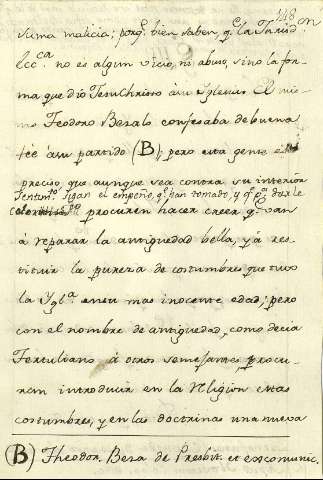 148
suma malicia; porq.e bien saben, q.e la Jurisd.on
Ecc.ca no es algun vicio, ni abuso, sino la for-
ma que dió Jesu Christo á su Iglesia. El mis-
mo Teodoro Beza lo confesaba de buena
feé á su partido (B); pero esta gente es
preciso que aunque sea contra su interior
sentim.to sigan el empeño, q.e han tomado, y q.e p.a darle
procuren hacer creer q.e van
á reparar la antiguedad bella, y á res-
tituir la pureza de costumbres que tuvo
la Ygl.a en su mas inocente edad; pero
con el nombre de antiguedad, como decia
Tertuliano á otros semejantes, procu-
ran introducir en la Religion estas
costumbres, y en las doctrinas una nueva
(B) Theodor. Beza de Presbit. et excomunic.